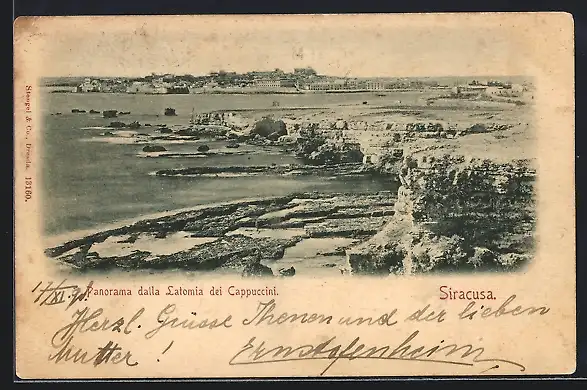 Siracusa.
Stengel & Co., Dresda. 13160.
Panorama dalla Latomia dei Cappuccini.
Siracusa.
Herzl. Grüsse Ihnen und der lieben
Mutter!